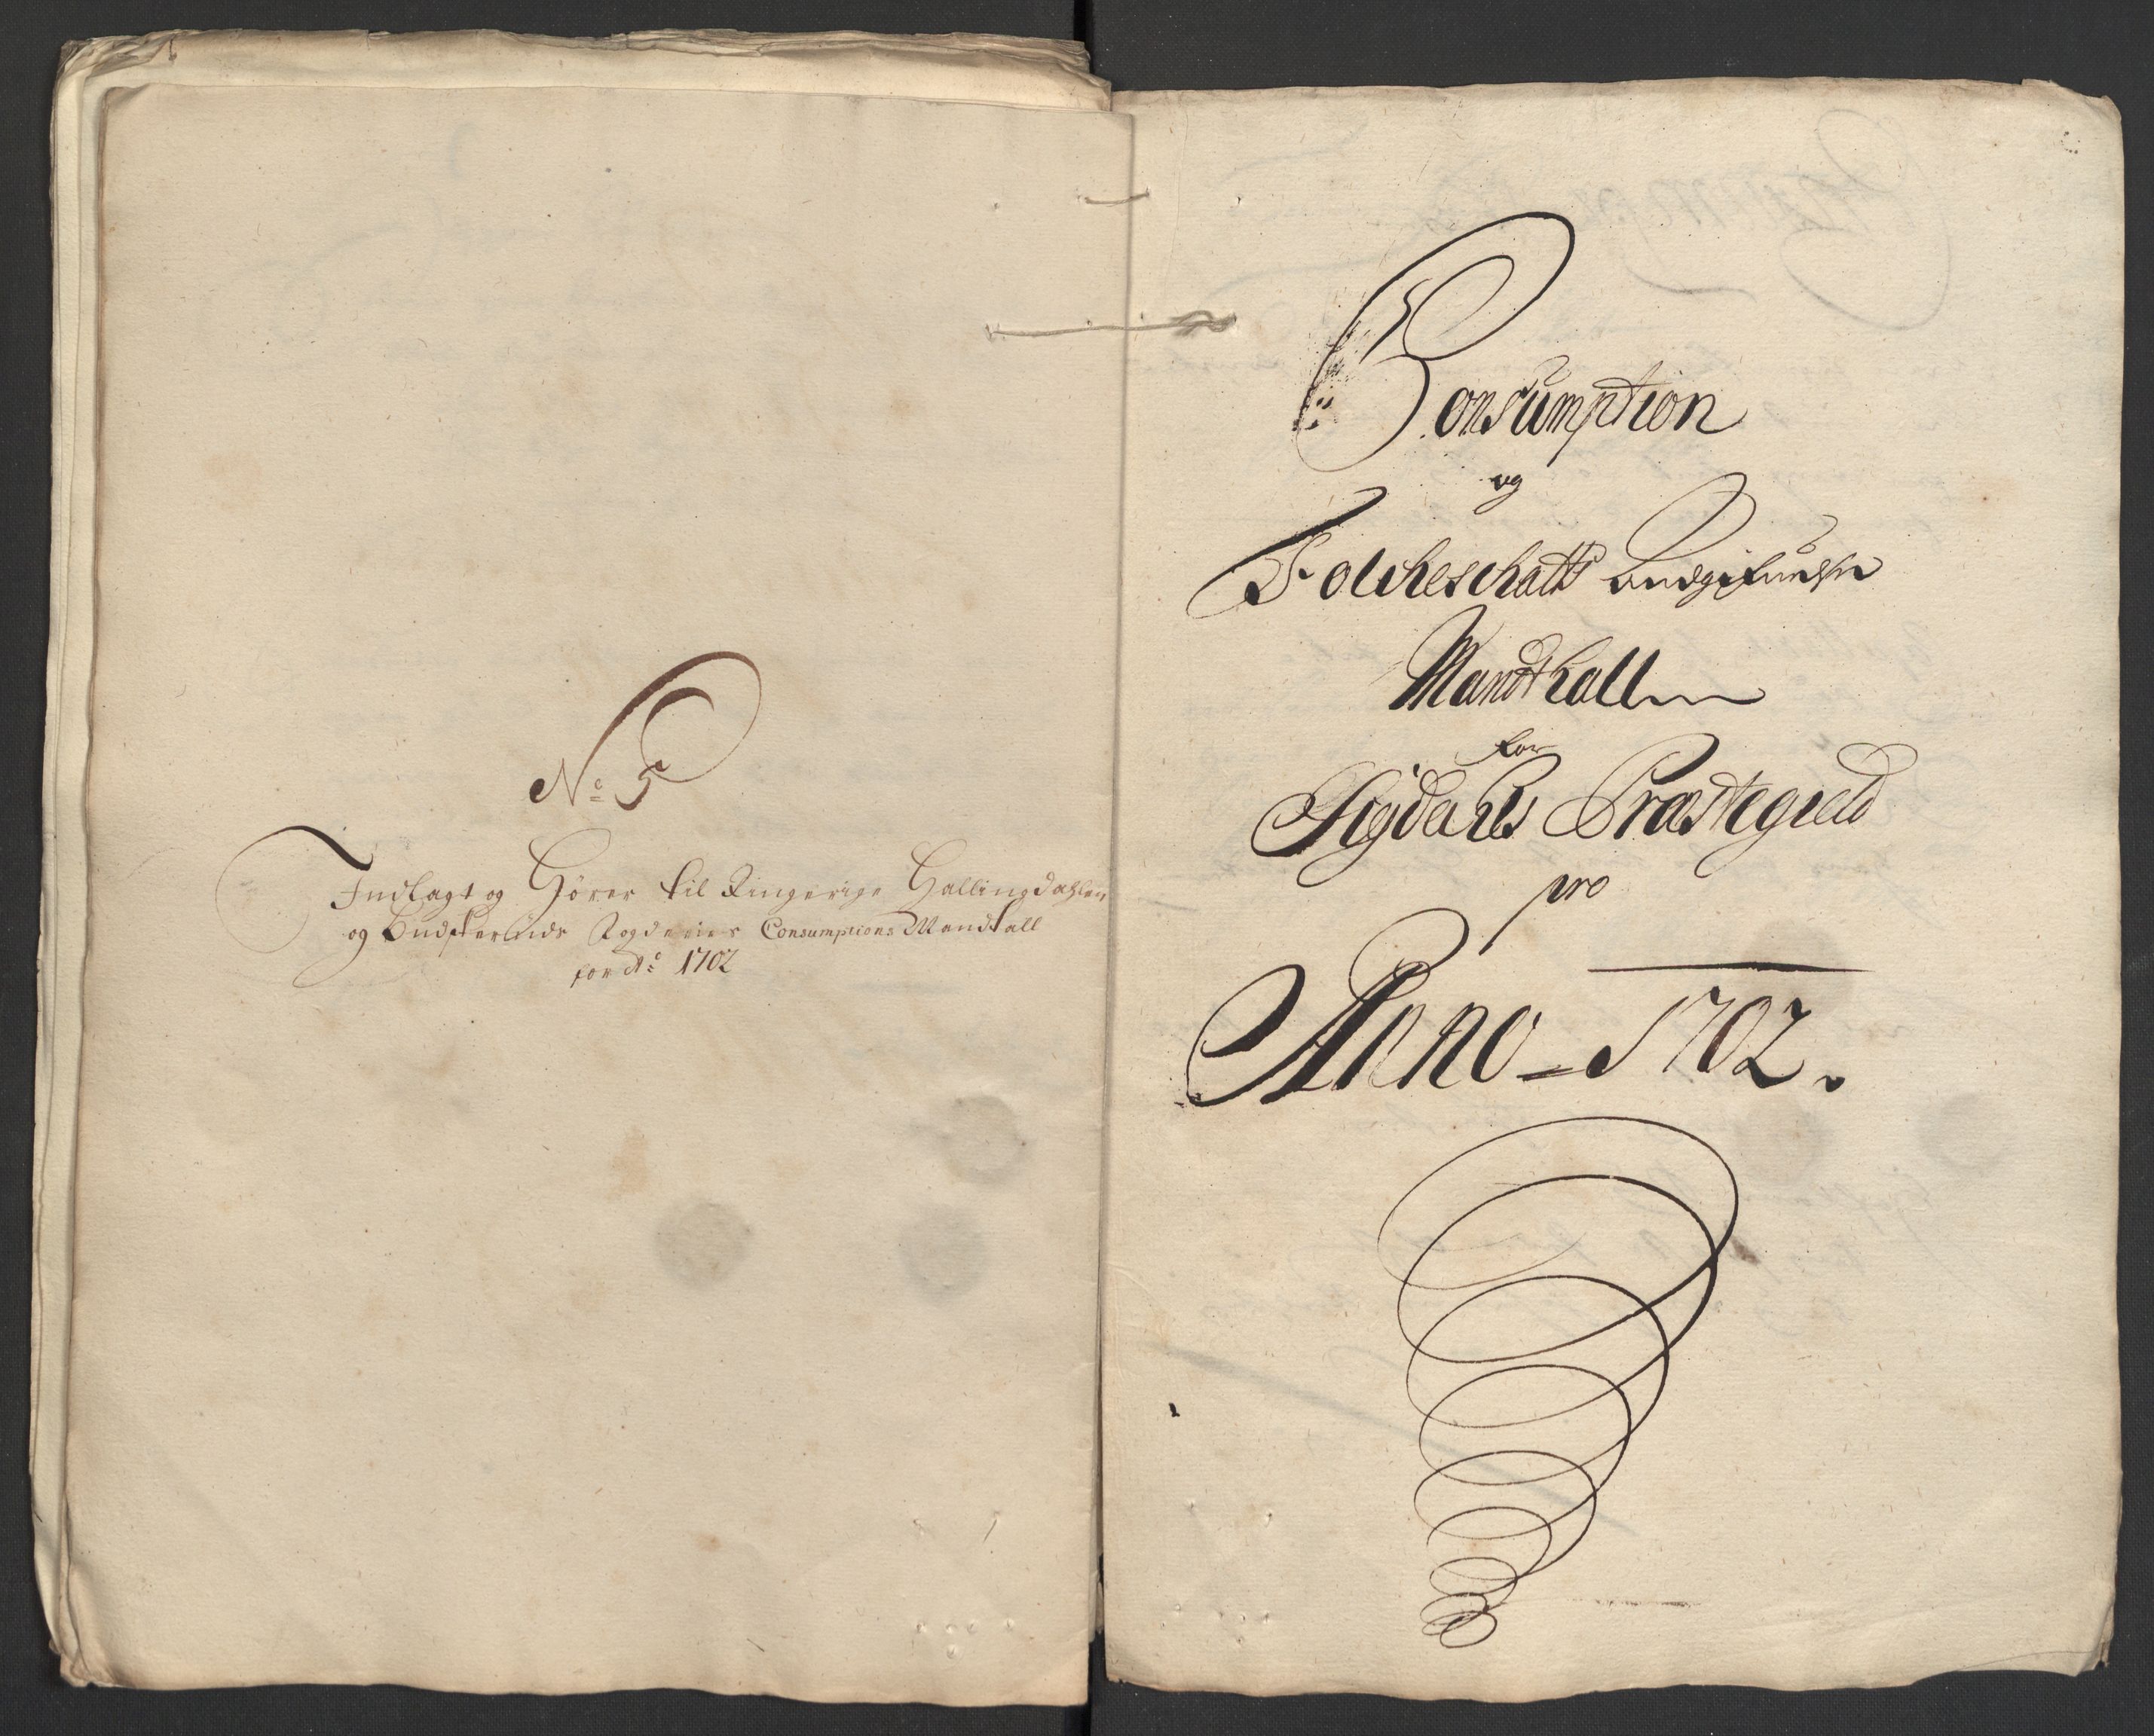 No 5
Indlagt og Hører til Ringerige Hallingdahlen
og Budskeruds Fogderies Consumptions Mandtall
for Ao 1702
Consumption
og
Folcheschatts
Mandthall
for
Sigdahls Præstegield
pro
Anno = 1702.